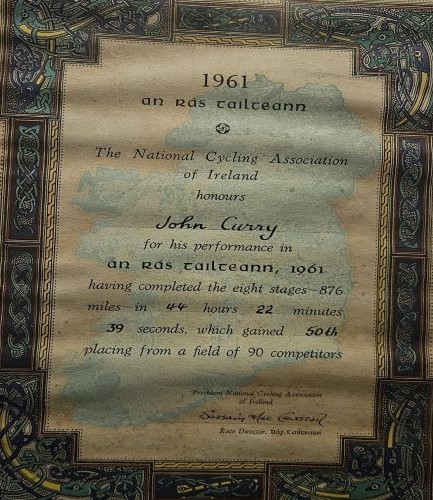 1961
an rás tailteann
The National Cycling Association
of Ireland
honours
John Curry
for his performance in
an rás tailteann, 1961
having completed the eight stages—876
miles in 44 hours 22 minutes
39 seconds, which gained 50th
placing from a field of 90 competitors
President National Cycling Association
of Ireland
Race Director, Rás Tailteann